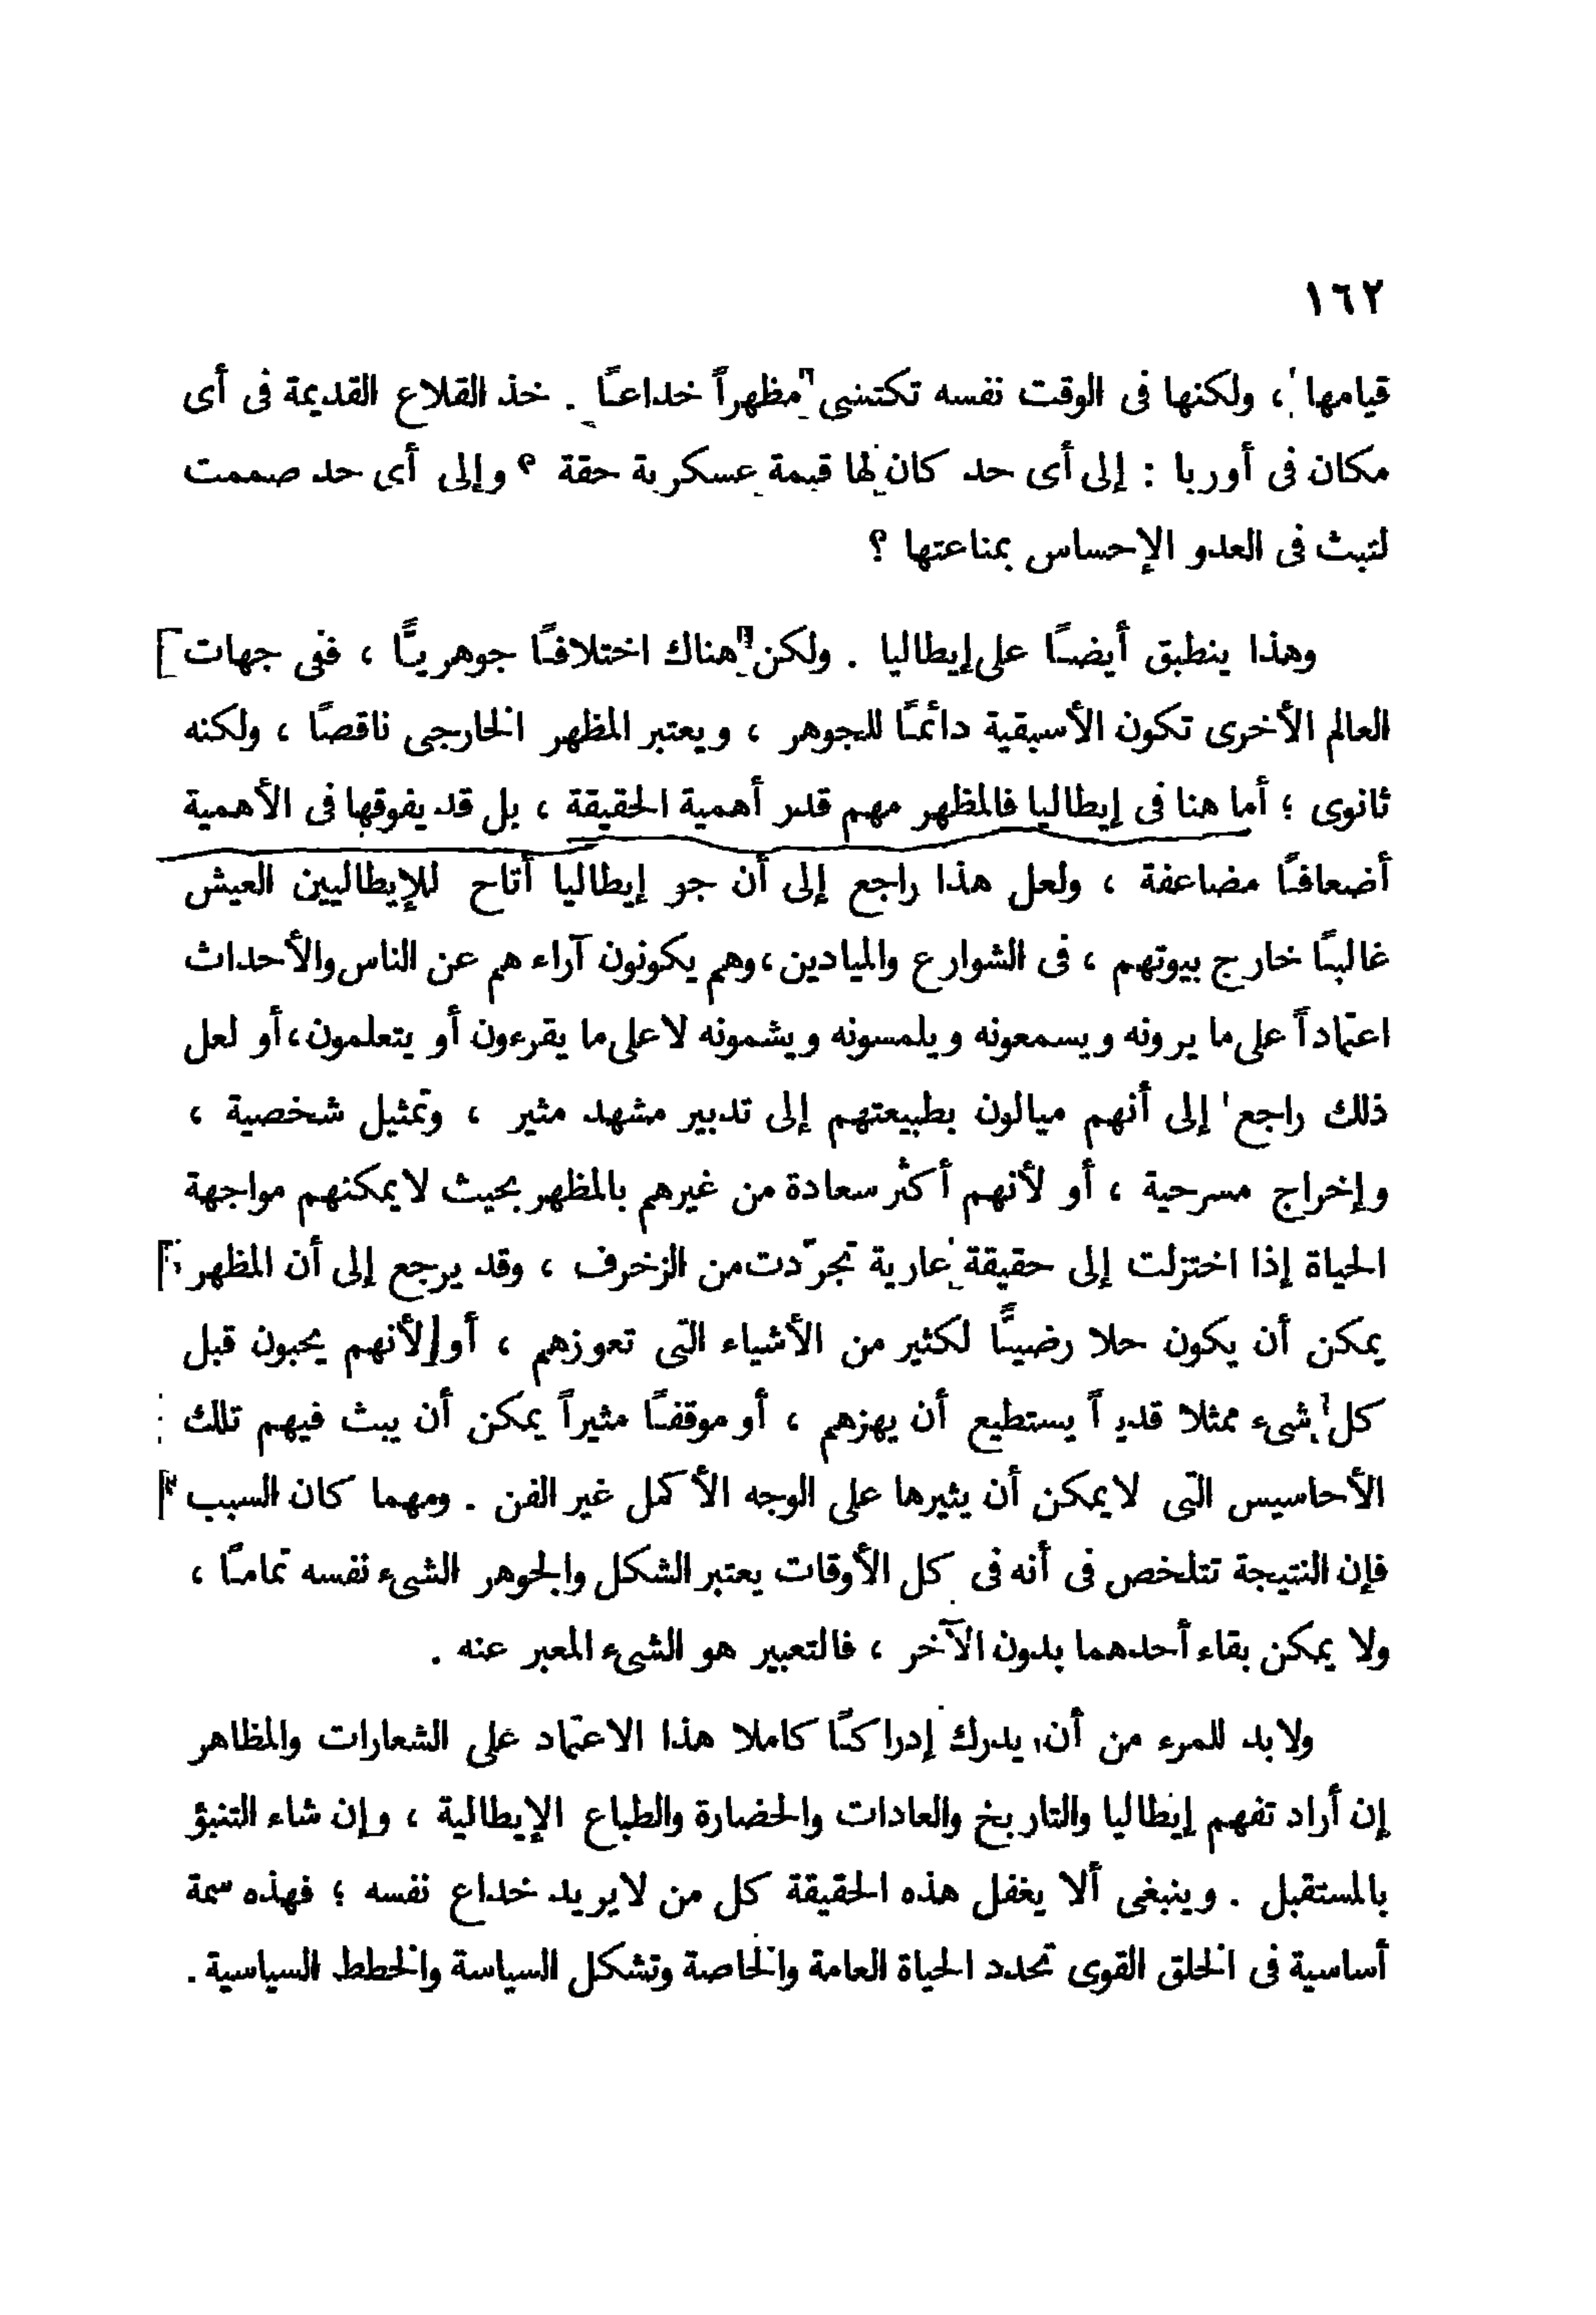 ١٦٢
قيامها ، ولكنها فى الوقت نفسه تكتسى مظهراً خداعـًا . خذ القلاع القديمة فى أى
مكان فى أوربا : إلى أى حد كان لها قيمة عسكرية حقة ؟ وإلى أى حد صممت
لتبث فى العدو الإحساس بمناعتها ؟
وهذا ينطبق أيضـًا على إيطاليا . ولكن هناك اختلافـًا جوهريـًّا ، ففى جهات
العالم الأخرى تكون الأسبقية دائمـًا للجوهر ، ويعتبر المظهر الخارجى ناقصًا ، ولكنه
ثانوى ؛ أما هنا فى إيطاليا فالمظهر مهم قدر أهمية الحقيقة ، بل قد يفوقها فى الأهمية
أضعافـًا مضاعفة ، ولعل هذا راجع إلى أن جو إيطاليا أتاح للإيطاليين العيش
غالبـًا خارج بيوتهم ، فى الشوارع والميادين ، وهم يكونون آراءهم عن الناس والأحداث
اعتماداً على ما يرونه ويسمعونه ويلمسونه ويشمونه لا على ما يقرءون أو يتعلمون ، أو لعل
ذلك راجع إلى أنهم ميالون بطبيعتهم إلى تدبير مشهد مثير ، وتمثيل شخصية ،
وإخراج مسرحية ، أو لأنهم أكثر سعادة من غيرهم بالمظهر بحيث لا يمكنهم مواجهة
الحياة إذا اختزلت إلى حقيقة عارية تجرّدت من الزخرف ، وقد يرجع إلى أن المظهر
يمكن أن يكون حلا رضيـًّا لكثير من الأشياء التى تعوزهم ، أو لأنهم يحبون قبل
كل شىء ممثلا قديراً يستطيع أن يهزهم ، أو موقفـًا مثيراً يمكن أن يبث فيهم تلك
الأحاسيس التى لا يمكن أن يثيرها على الوجه الأكمل غير الفن . ومهما كان السبب
فإن النتيجة تتلخص فى أنه فى كل الأوقات يعتبر الشكل والجوهر الشىء نفسه تمامـًا ،
ولا يمكن بقاء أحدهما بدون الآخر ، فالتعبير هو الشىء المعبر عنه .
ولابد للمرء من أن يدرك إدراكـًا كاملا هذا الاعتماد على الشعارات والمظاهر
إن أراد تفهم إيطاليا والتاريخ والعادات والحضارة والطباع الإيطالية ، وإن شاء التنبؤ
بالمستقبل . وينبغى ألا يغفل هذه الحقيقة كل من لا يريد خداع نفسه ؛ فهذه سمة
أساسية فى الخلق القوى تحدد الحياة العامة والخاصة وتشكل السياسة والخطط السياسية .